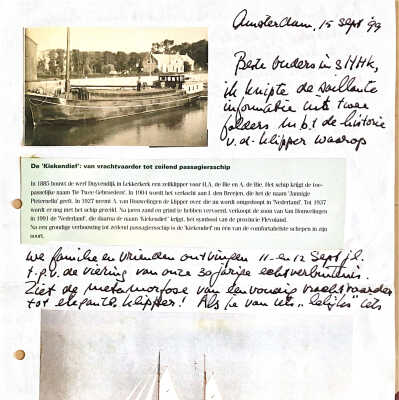 Amsterdam, 15 sept '99
Beste ouders in SHHK,
ik knipte de saillante
informatie uit twee
folders m.b.t de historie
v.d. klipper waarop
De 'Kiekendief': van vrachtvaarder tot zeilend passagiersschip
In 1885 bouwt de werf Duyvendijk in Lekkerkerk een zeilklipper voor H.A. de Bie en A. de Bie. Het schip krijgt de toe-
passelijke naam 'De Twee Gebroeders'. In 1904 wordt het verkocht aan J. den Breejen, die het de naam 'Jannigje
Pieternella' geeft. In 1927 neemt A. van Bouwelingen de klipper over die nu wordt omgedoopt in 'Nederland'. Tot 1957
wordt er nog met het schip gezeild. Na jaren zand en grind te hebben vervoerd, verkoopt de zoon van Van Bouwelingen
in 1991 de 'Nederland', die daarna de naam 'Kiekendief' krijgt, het symbool van de provincie Flevoland.
Na een grondige verbouwing tot zeilend passagiersschip is de 'Kiekendief' nu een van de comfortabelste schepen in zijn
soort.
we familie en vrienden ontvingen 11- en 12 Sept jl.
t.g.v. de viering van onze 30 jarige echtverbintenis.
Ziet de metamorfose van eenvoudig vrachtvaarder
tot elegante klipper! Als je van iets "lelijks" iets